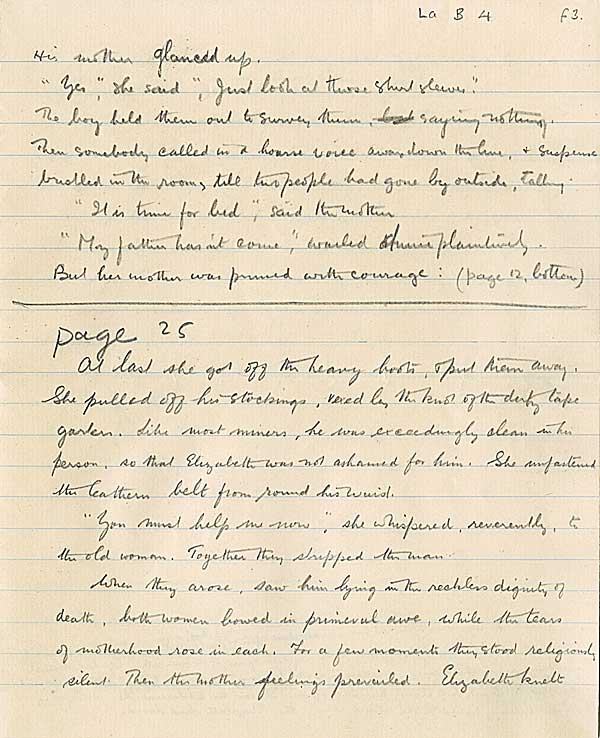 La B 4 f3.
His mother glanced up.
"Yes", she said, "Just look at those shirt sleeves".
The boy held them out to survey them, saying nothing.
Then somebody called in a hoarse voice away down the line, & suspense
bristled in the room, till two people had gone by outside, talking.
"It is time for bed", said the mother
"My father hasn't come", wailed Annie plaintively.
But her mother was primed with courage: (page 12, bottom)
page 25
At last she got off the heavy boots, & put them away.
She pulled off his stockings, vexed by the knot of the dirty tape
garters. Like most miners, he was exceedingly clean in his
person, so that Elizabeth was not ashamed for him. She unfastened
the leathern belt from round his waist.
"You must help me now", she whispered, reverently, to
the old woman. Together they stripped the man.
When they arose, saw him lying in the reckless dignity of
death, both women bowed in primeval awe, while the tears
of motherhood rose in each. For a few moments they stood religiously
silent. Then the mother feelings prevailed. Elizabeth knelt